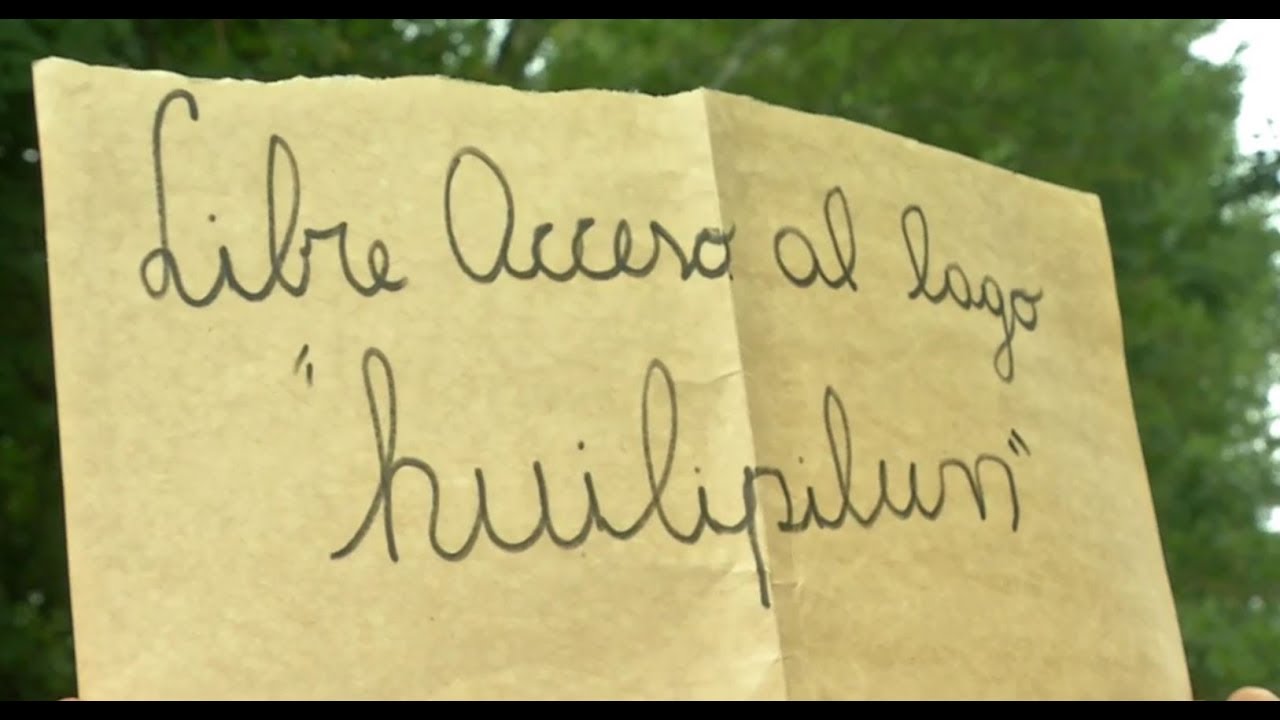 Libre Acceso al lago
"huilipilun"